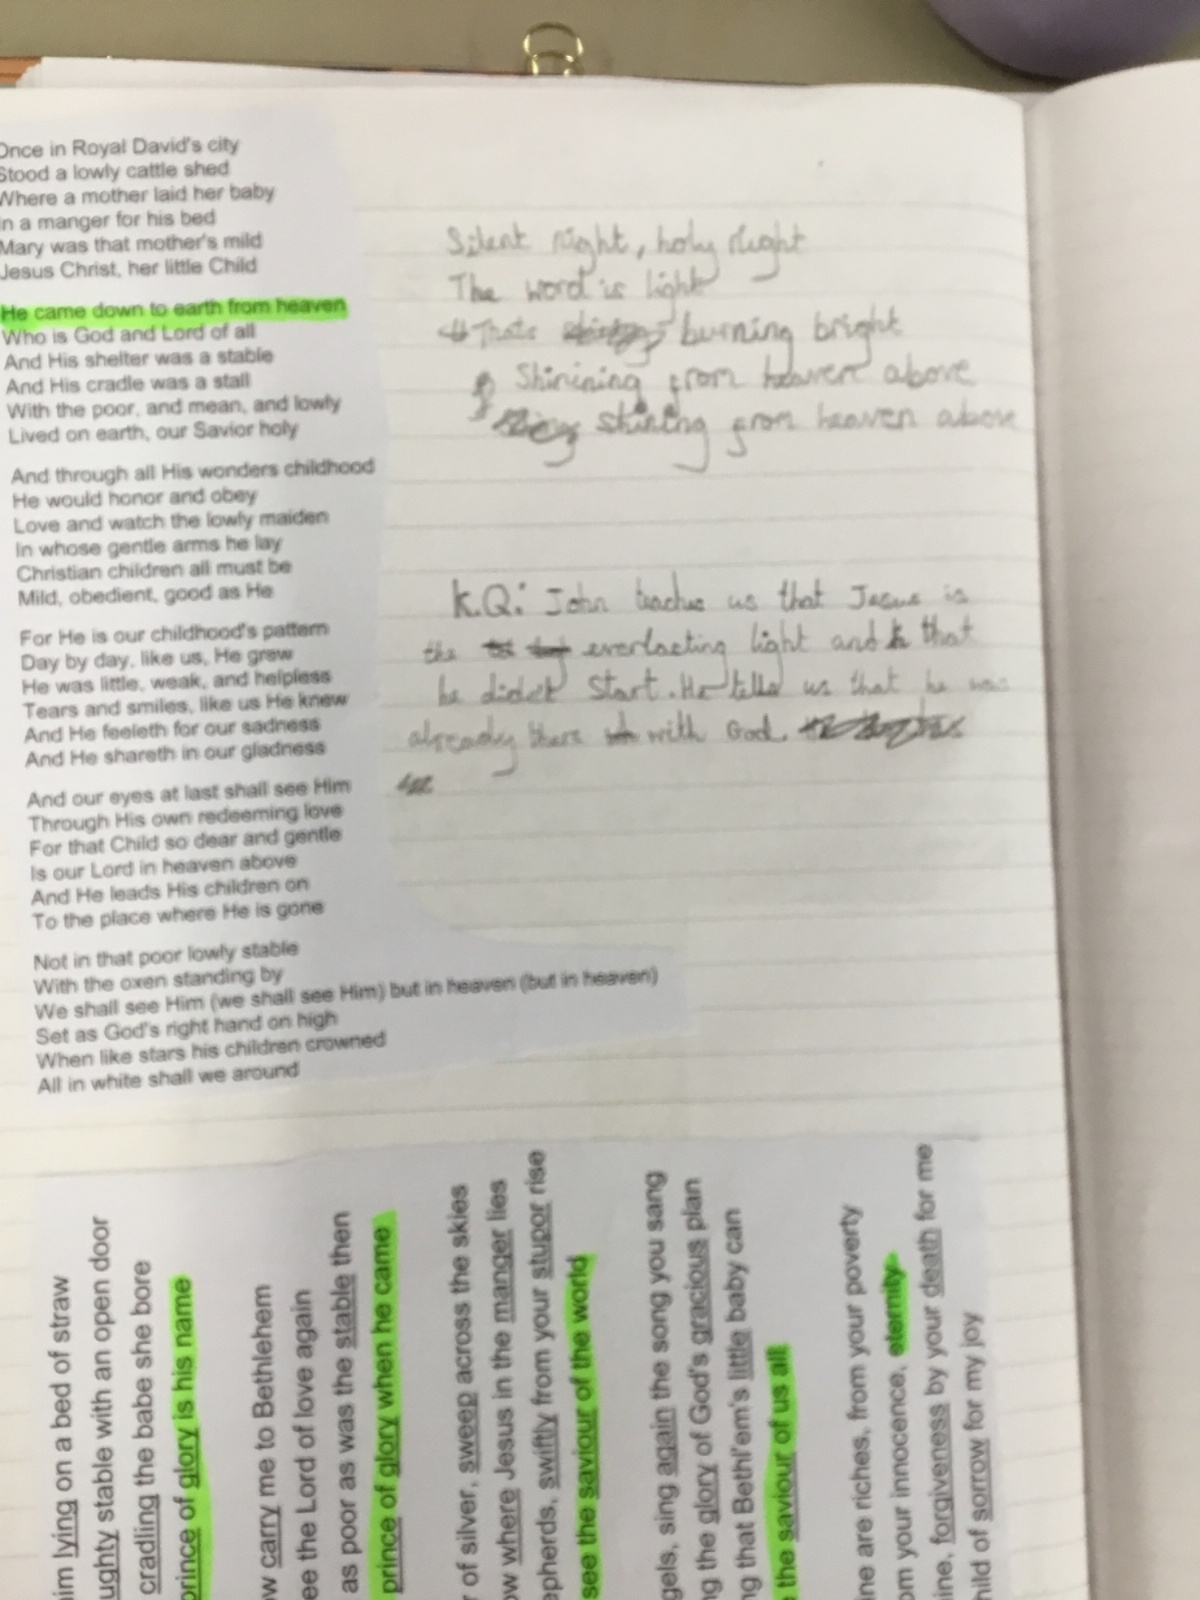 Once in Royal David's city
Stood a lowly cattle shed
Where a mother laid her baby
In a manger for his bed
Mary was that mother's mild
Jesus Christ, her little Child
He came down to earth from heaven
Who is God and Lord of all
And His shelter was a stable
And His cradle was a stall
With the poor, and mean, and lowly
Lived on earth, our Savior holy
And through all His wonders childhood
He would honor and obey
Love and watch the lowly maiden
In whose gentle arms he lay
Christian children all must be
Mild, obedient, good as He
For He is our childhood's pattern
Day by day, like us, He grew
He was little, weak, and helpless
Tears and smiles, like us He knew
And He feeleth for our sadness
And He shareth in our gladness
And our eyes at last shall see Him
Through His own redeeming love
For that Child so dear and gentle
Is our Lord in heaven above
And He leads His children on
To the place where He is gone
Not in that poor lowly stable
With the oxen standing by
We shall see Him (we shall see Him) but in heaven (but in heaven)
Set as God's right hand on high
When like stars his children crowned
All in white shall we around
Silent night, holy night
The word is light
Thats burning bright
Shinining from heaven above
shining from heaven above
K.Q: John teaches us that Jesus is
the everlasting light and that
he didn't start. He tells us that he was
already there with God.
him lying on a bed of straw
ughty stable with an open door
cradling the babe she bore
prince of glory is his name
ow carry me to Bethlehem
ee the Lord of love again
as poor as was the stable then
prince of glory when he came
r of silver, sweep across the skies
ow where Jesus in the manger lies
epherds, swiftly from your stupor rise
see the saviour of the world
gels, sing again the song you sang
ng the glory of God's gracious plan
ng that Bethl'em's little baby can
the saviour of us all
ine are riches, from your poverty
om your innocence, eternity
ine, forgiveness by your death for me
hild of sorrow for my joy